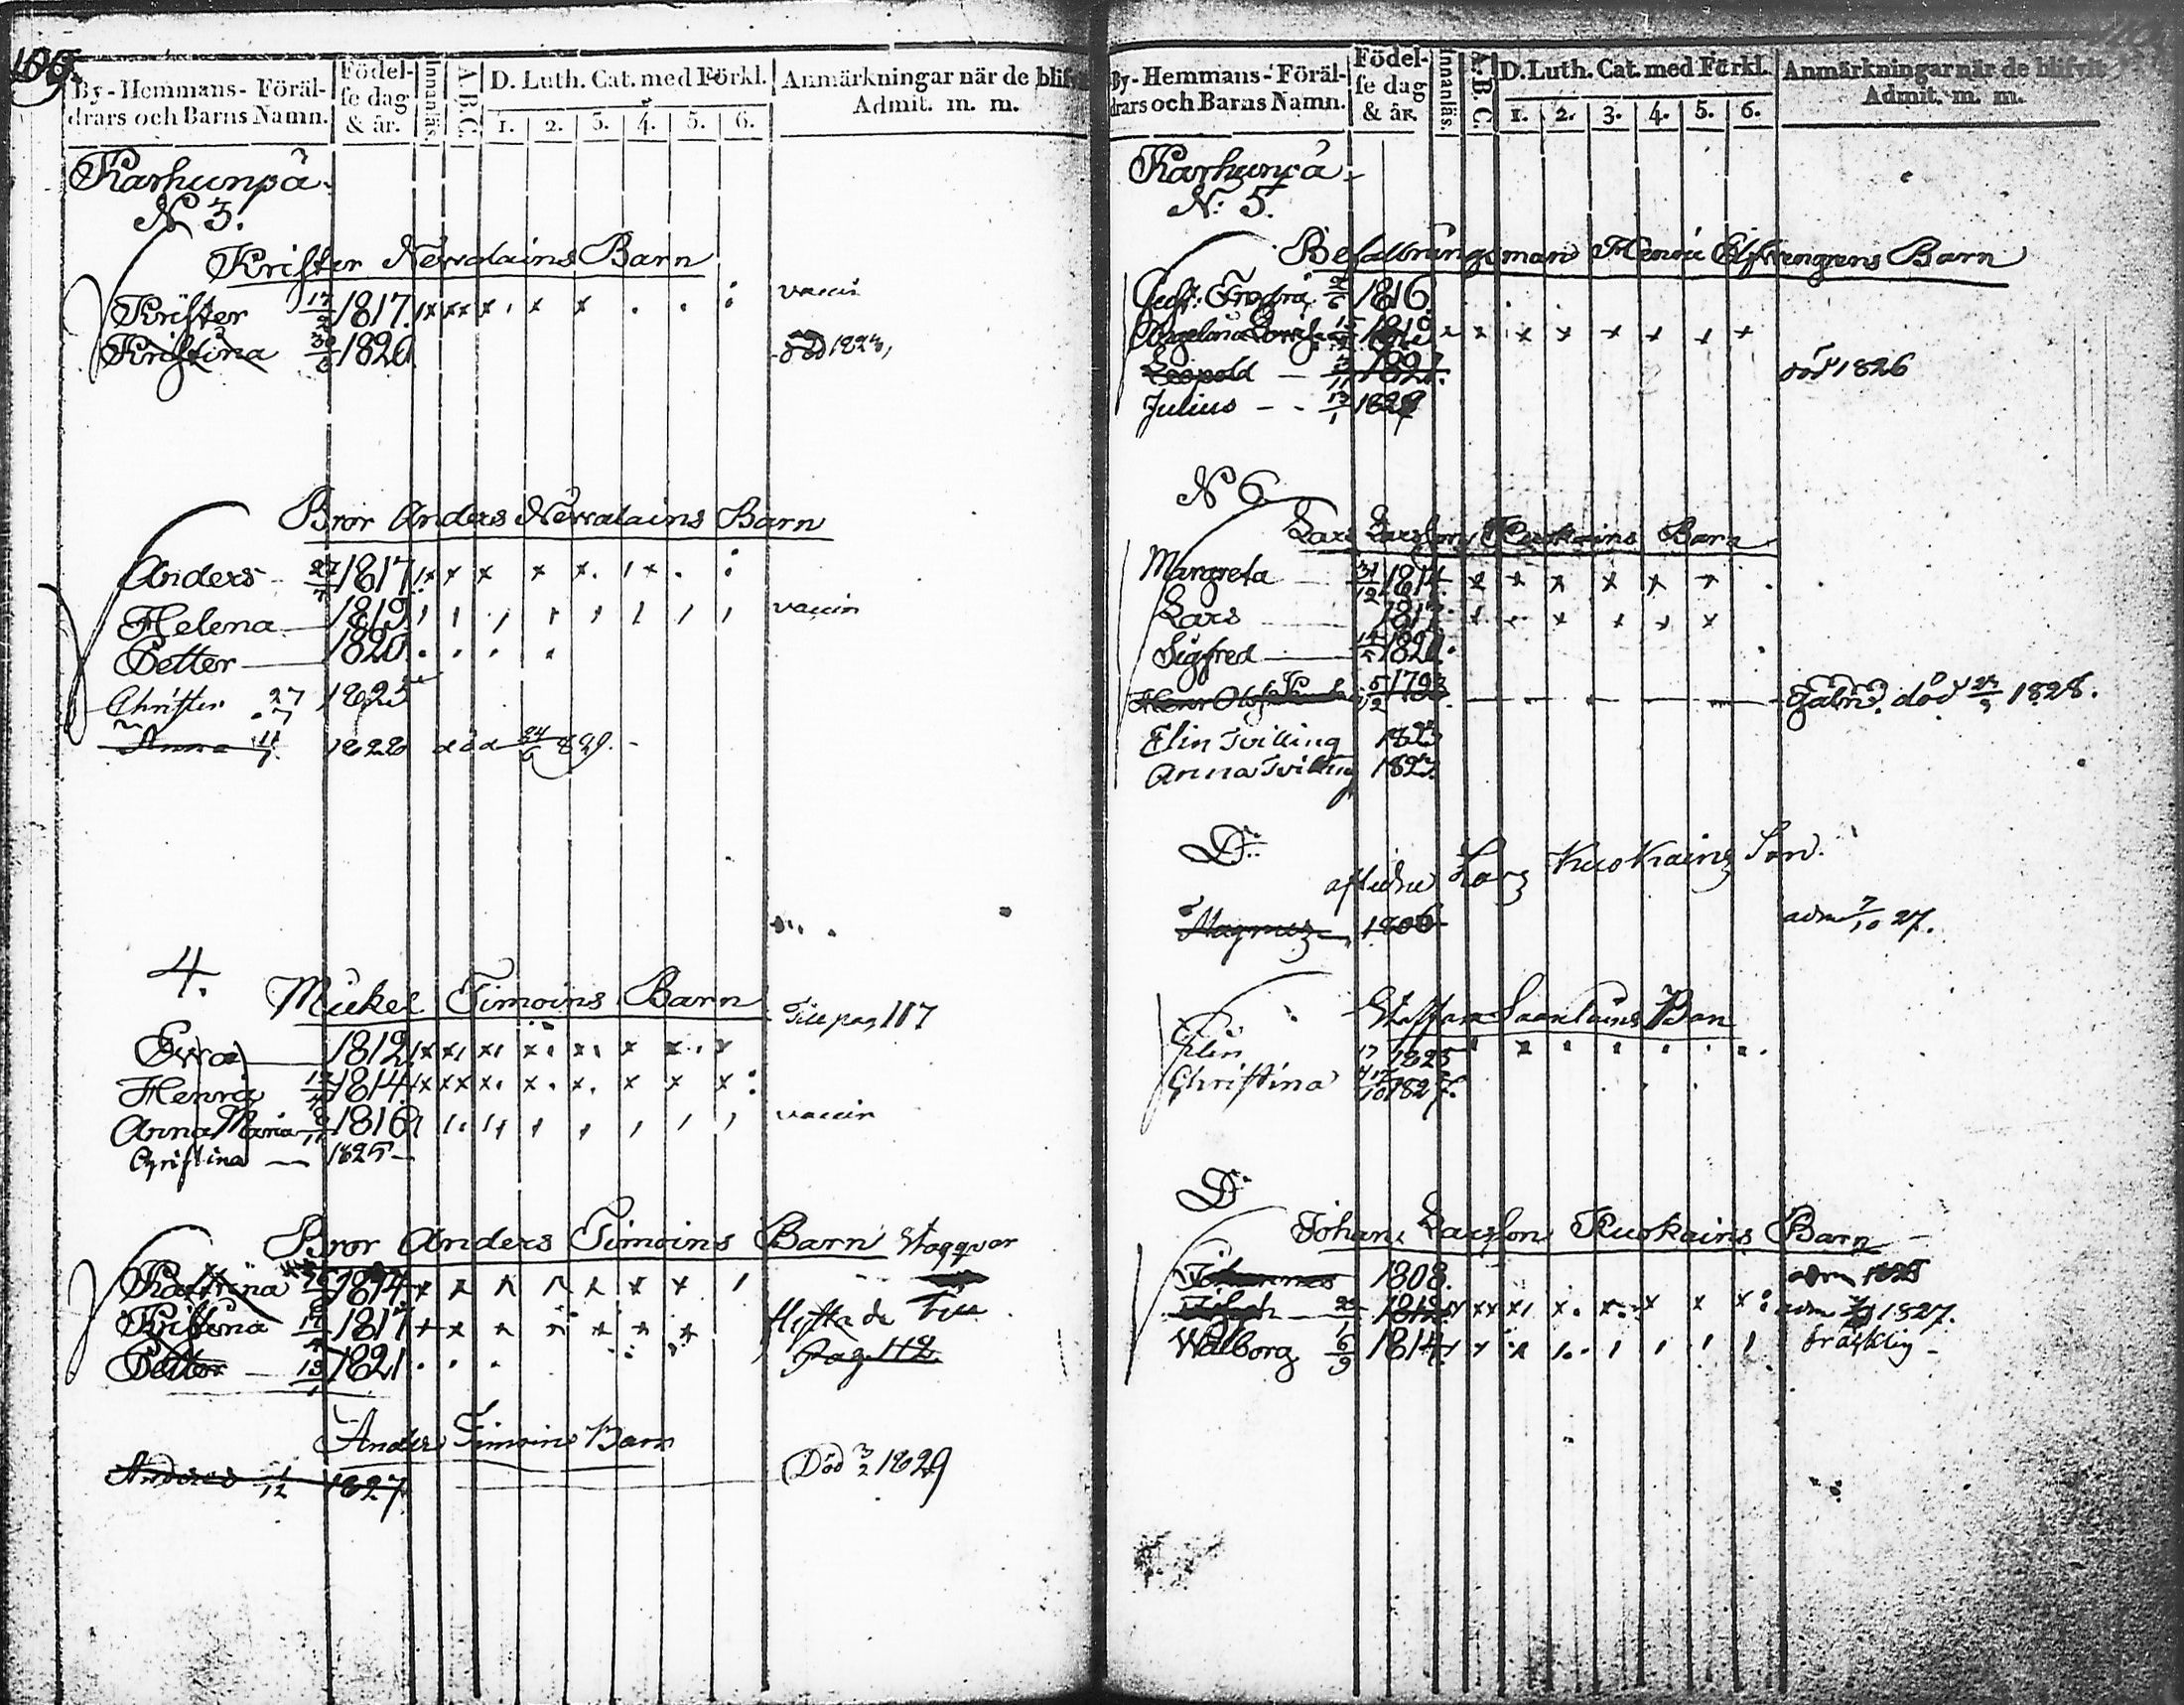 109.
By-Hemmans-Föräl-
drars och Barns Namn.
Födel-
se dag
& år.
Innanläs.
A.B.C.
D. Luth. Cat. med Förkl.
1. 2. 3. 4. 5. 6.
Anmärkningar när de blifvit
Admit. m. m.
Karhunpä.
N 3.
Krister Nevalains Barn
Krister 17/2 1817. vaccin
Kristina 30/6 1820 död 1823,
Bror Anders Nevalains Barn
Anders 27/7 1817
Helena 1819 vaccin
Petter 1820
Christer 27/7 1825
Anna 11/7 1828 död 24/6 829.
4.
Mickel Timoins Barn Till pag 117
Ewa 1812
Henric 1814
Anna Maria 1816 vaccin
Christina 1825
Bror Anders Timoins Barn Stagqvar
Kattrina 1814
Kristina 1817 flyttade Till
Petter 13/1 1821 Pag. 112.
Anders Timoins Barn
Anders 1/12 1827 Död 3/2 1829
By-Hemmans-Föräl-
drars och Barns Namn.
Födel-
se dag
& år.
Innanläs.
A.B.C.
D. Luth. Cat. med Förkl.
1. 2. 3. 4. 5. 6.
Anmärkningar när de blifvit
Admit. m. m.
Karhunpä.
N: 5.
Befallningsman Henric Elfvengrens Barn
1816
1818
Leopold 1821. död 1826
Julius 13/1 1827
N 6
Lars Larsson Kuokains Barn
Margreta 31/12 1814
Lars 1817
Sigfred 1820
5/2 1793 Galn. död 1828.
Elin Tvilling 1823
Anna Tvilling 1823
Do
aflidne Lars Kuokains Son.
Magnus 1806 adm 7/10 27.
Staffan Saarelains Barn
Elin 17 1825
Christina 1827.
Do
Johan Larsson Kuokains Barn
Johannes 1808. adm 1825
1812 adm 1827.
Walborg 6/9 1814 bräcklig